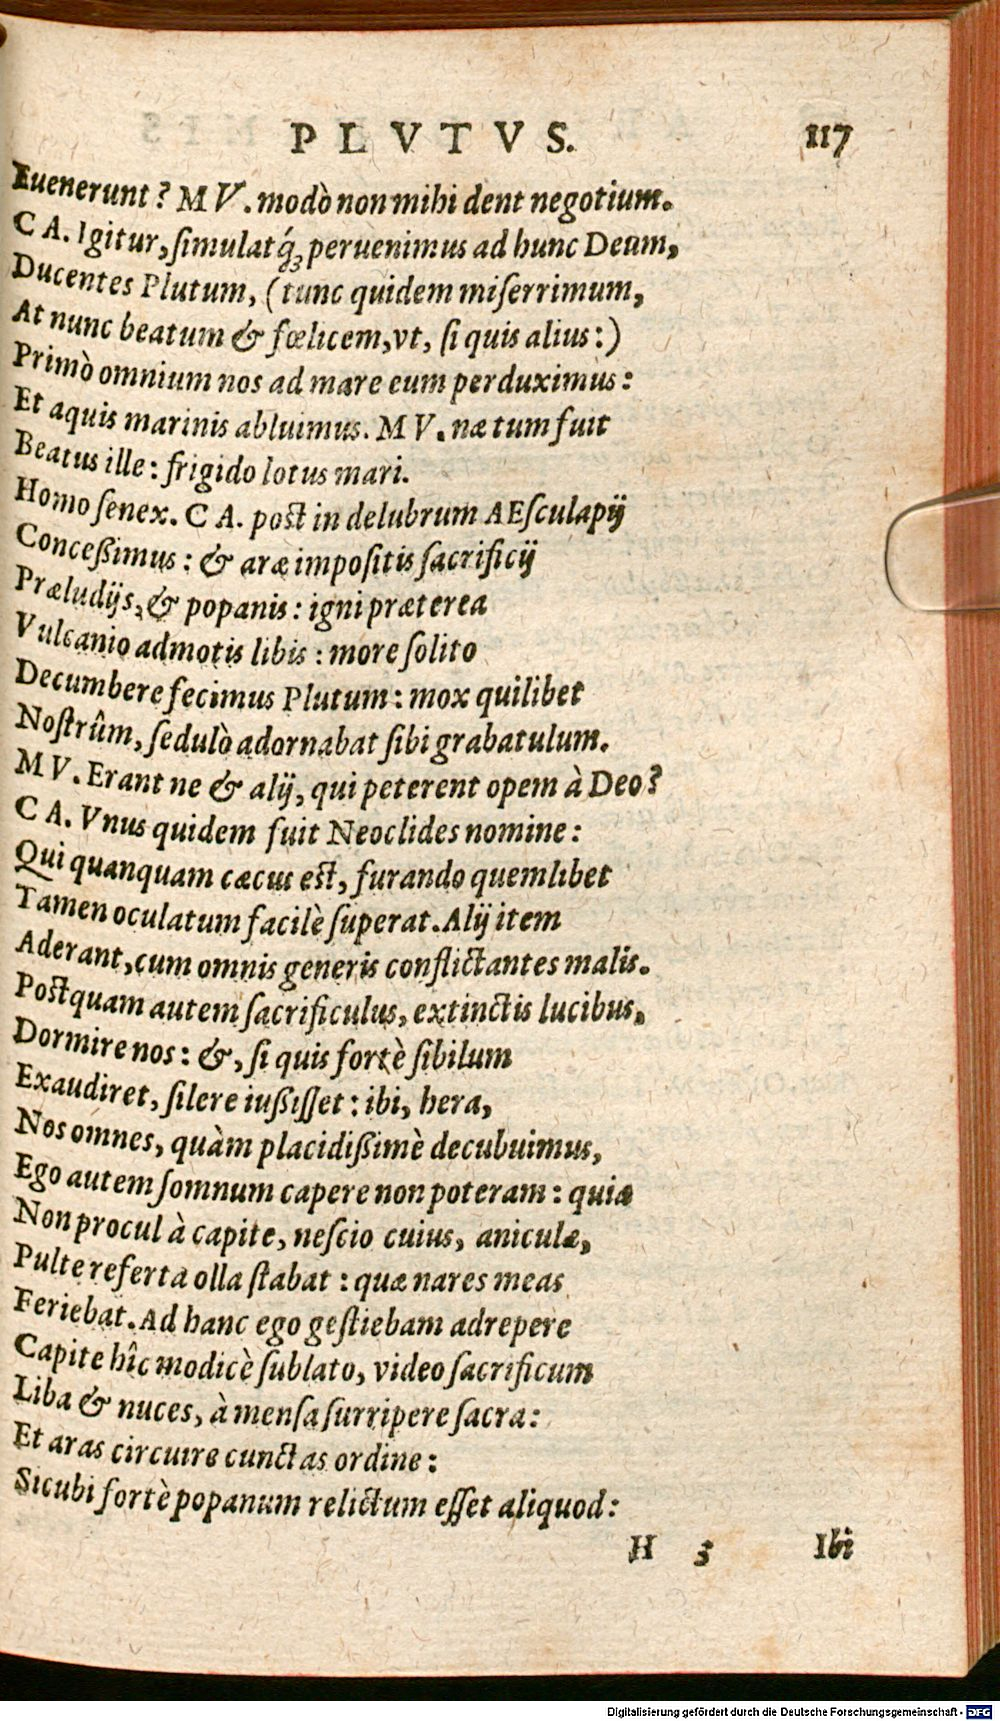 PLVTVS. 117
Euenerunt? MV. modò non mihi dent negotium.
CA. Igitur, ſimulatq́ꝫ peruenimus ad hunc Deum,
Ducentes Plutum, (tunc quidem miſerrimum,
At nunc beatum & fœlicem, vt, ſi quis alius:)
Primò omnium nos ad mare eum perduximus:
Et aquis marinis abluimus. MV. næ tum fuit
Beatus ille: frigido lotus mari.
Homo ſenex. CA. poſt in delubrum AEſculapij
Conceßimus: & aræ impoſitis ſacrificij
Præludijs, & popanis: igni præterea
Vulcanio admotis libis: more ſolito
Decumbere fecimus Plutum: mox quilibet
Noſtrûm, ſedulò adornabat ſibi grabatulum.
MV. Erant ne & alij, qui peterent opem à Deo?
CA. Vnus quidem fuit Neoclides nomine:
Qui quanquam cæcus eſt, furando quemlibet
Tamen oculatum facilè ſuperat. Alij item
Aderant, cum omnis generis conflictantes malis.
Poſtquam autem ſacrificulus, extinctis lucibus,
Dormire nos: &, ſi quis fortè ſibilum
Exaudiret, ſilere iußiſſet: ibi, hera,
Nos omnes, quàm placidißimè decubuimus,
Ego autem ſomnum capere non poteram: quia
Non procul à capite, neſcio cuius, aniculæ,
Pulte referta olla ſtabat: quæ nares meas
Feriebat. Ad hanc ego geſtiebam adrepere
Capite hîc modicè ſublato, video ſacrificum
Liba & nuces, à menſa ſurripere ſacra:
Et aras circuire cunctas ordine:
Sicubi fortè popanum relictum eſſet aliquod:
H 3 Ibi
Digitalisierung gefördert durch die Deutsche Forschungsgemeinschaft - DFG